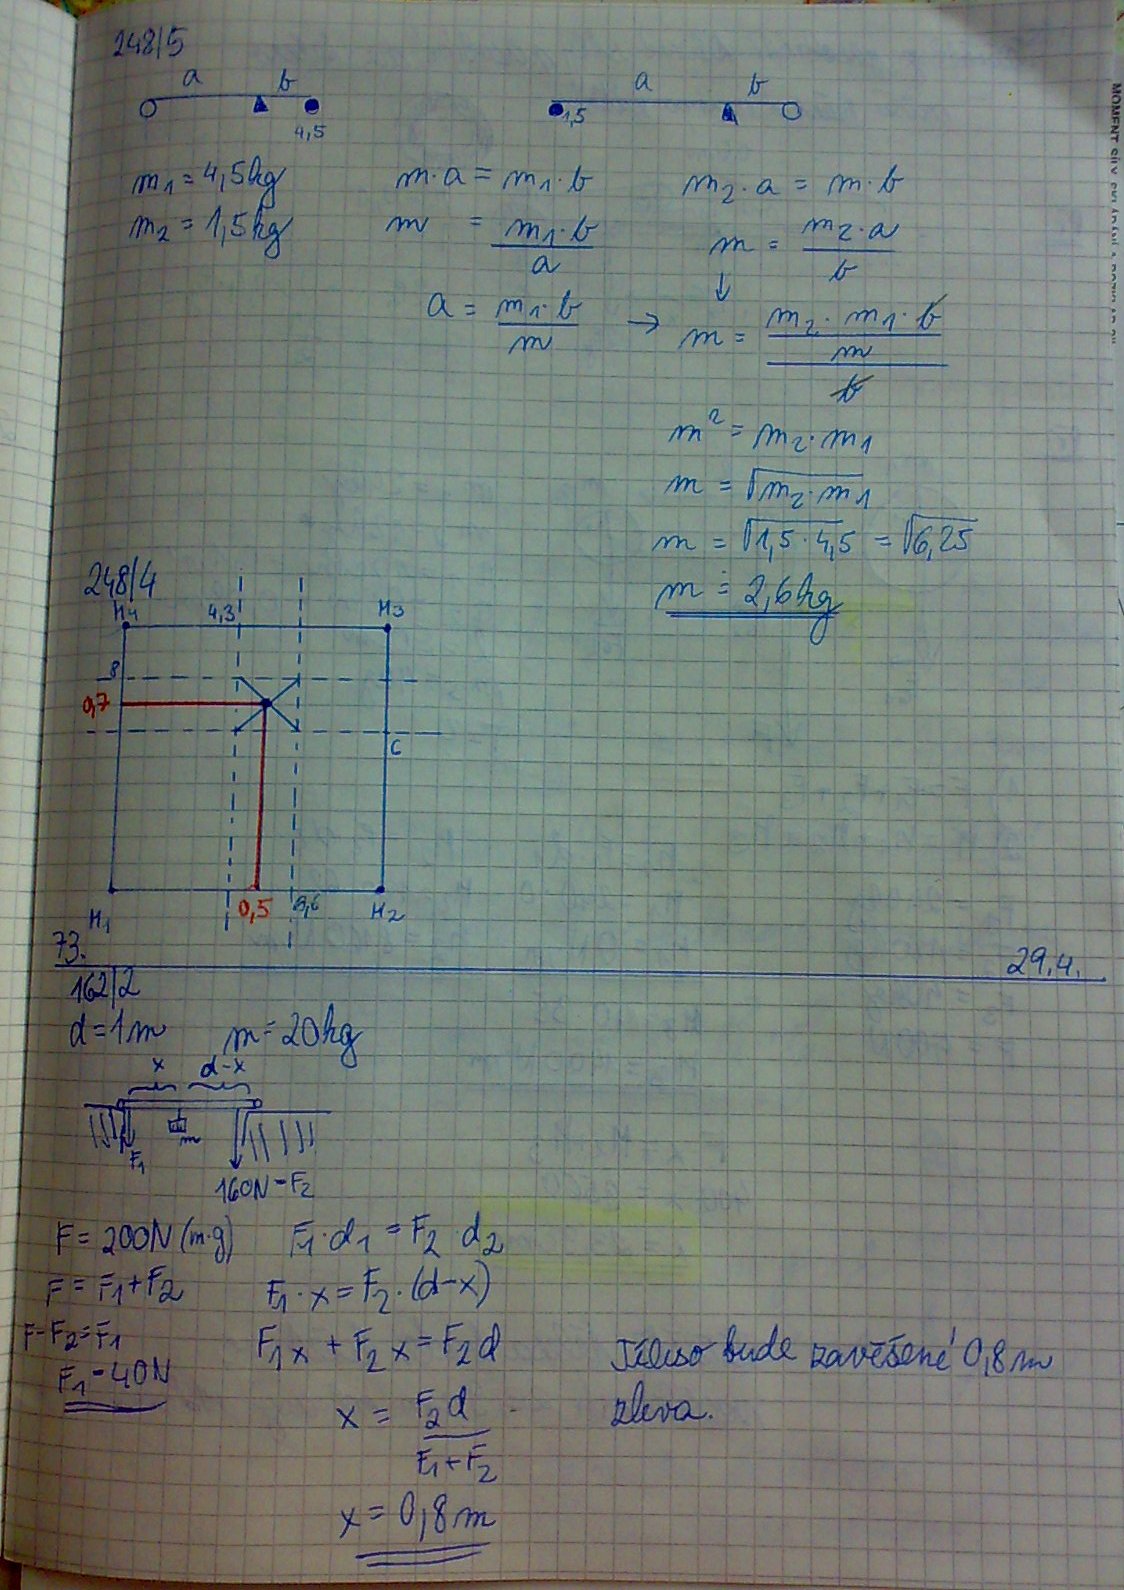 248/5
a b
4,5
a b
1,5
m₁ = 4,5kg
m₂ = 1,5kg
m·a = m₁·b
m = m₁·b / a
a = m₁·b / m
m₂·a = m·b
m = m₂·a / b
↓
→ m = m₂·m₁·b / m / b
m² = m₂·m₁
m = √m₂·m₁
m = √1,5·4,5 = √6,25
m ≐ 2,6kg
248/4
H₄ 4,3 H₃
8
0,7
6
H₁ 0,5 3,6 H₂
73. 29.4.
162/2
d = 1m m = 20kg
x d-x
m
F₁
160N = F₂
F = 200N (m·g)
F = F₁+F₂
F-F₂=F₁
F₁ = 40N
F₁·d₁ = F₂·d₂
F₁·x = F₂·(d-x)
F₁x + F₂x = F₂d
x = F₂d / F₁+F₂
x = 0,8m
Těleso bude zavěšené 0,8m
zleva.